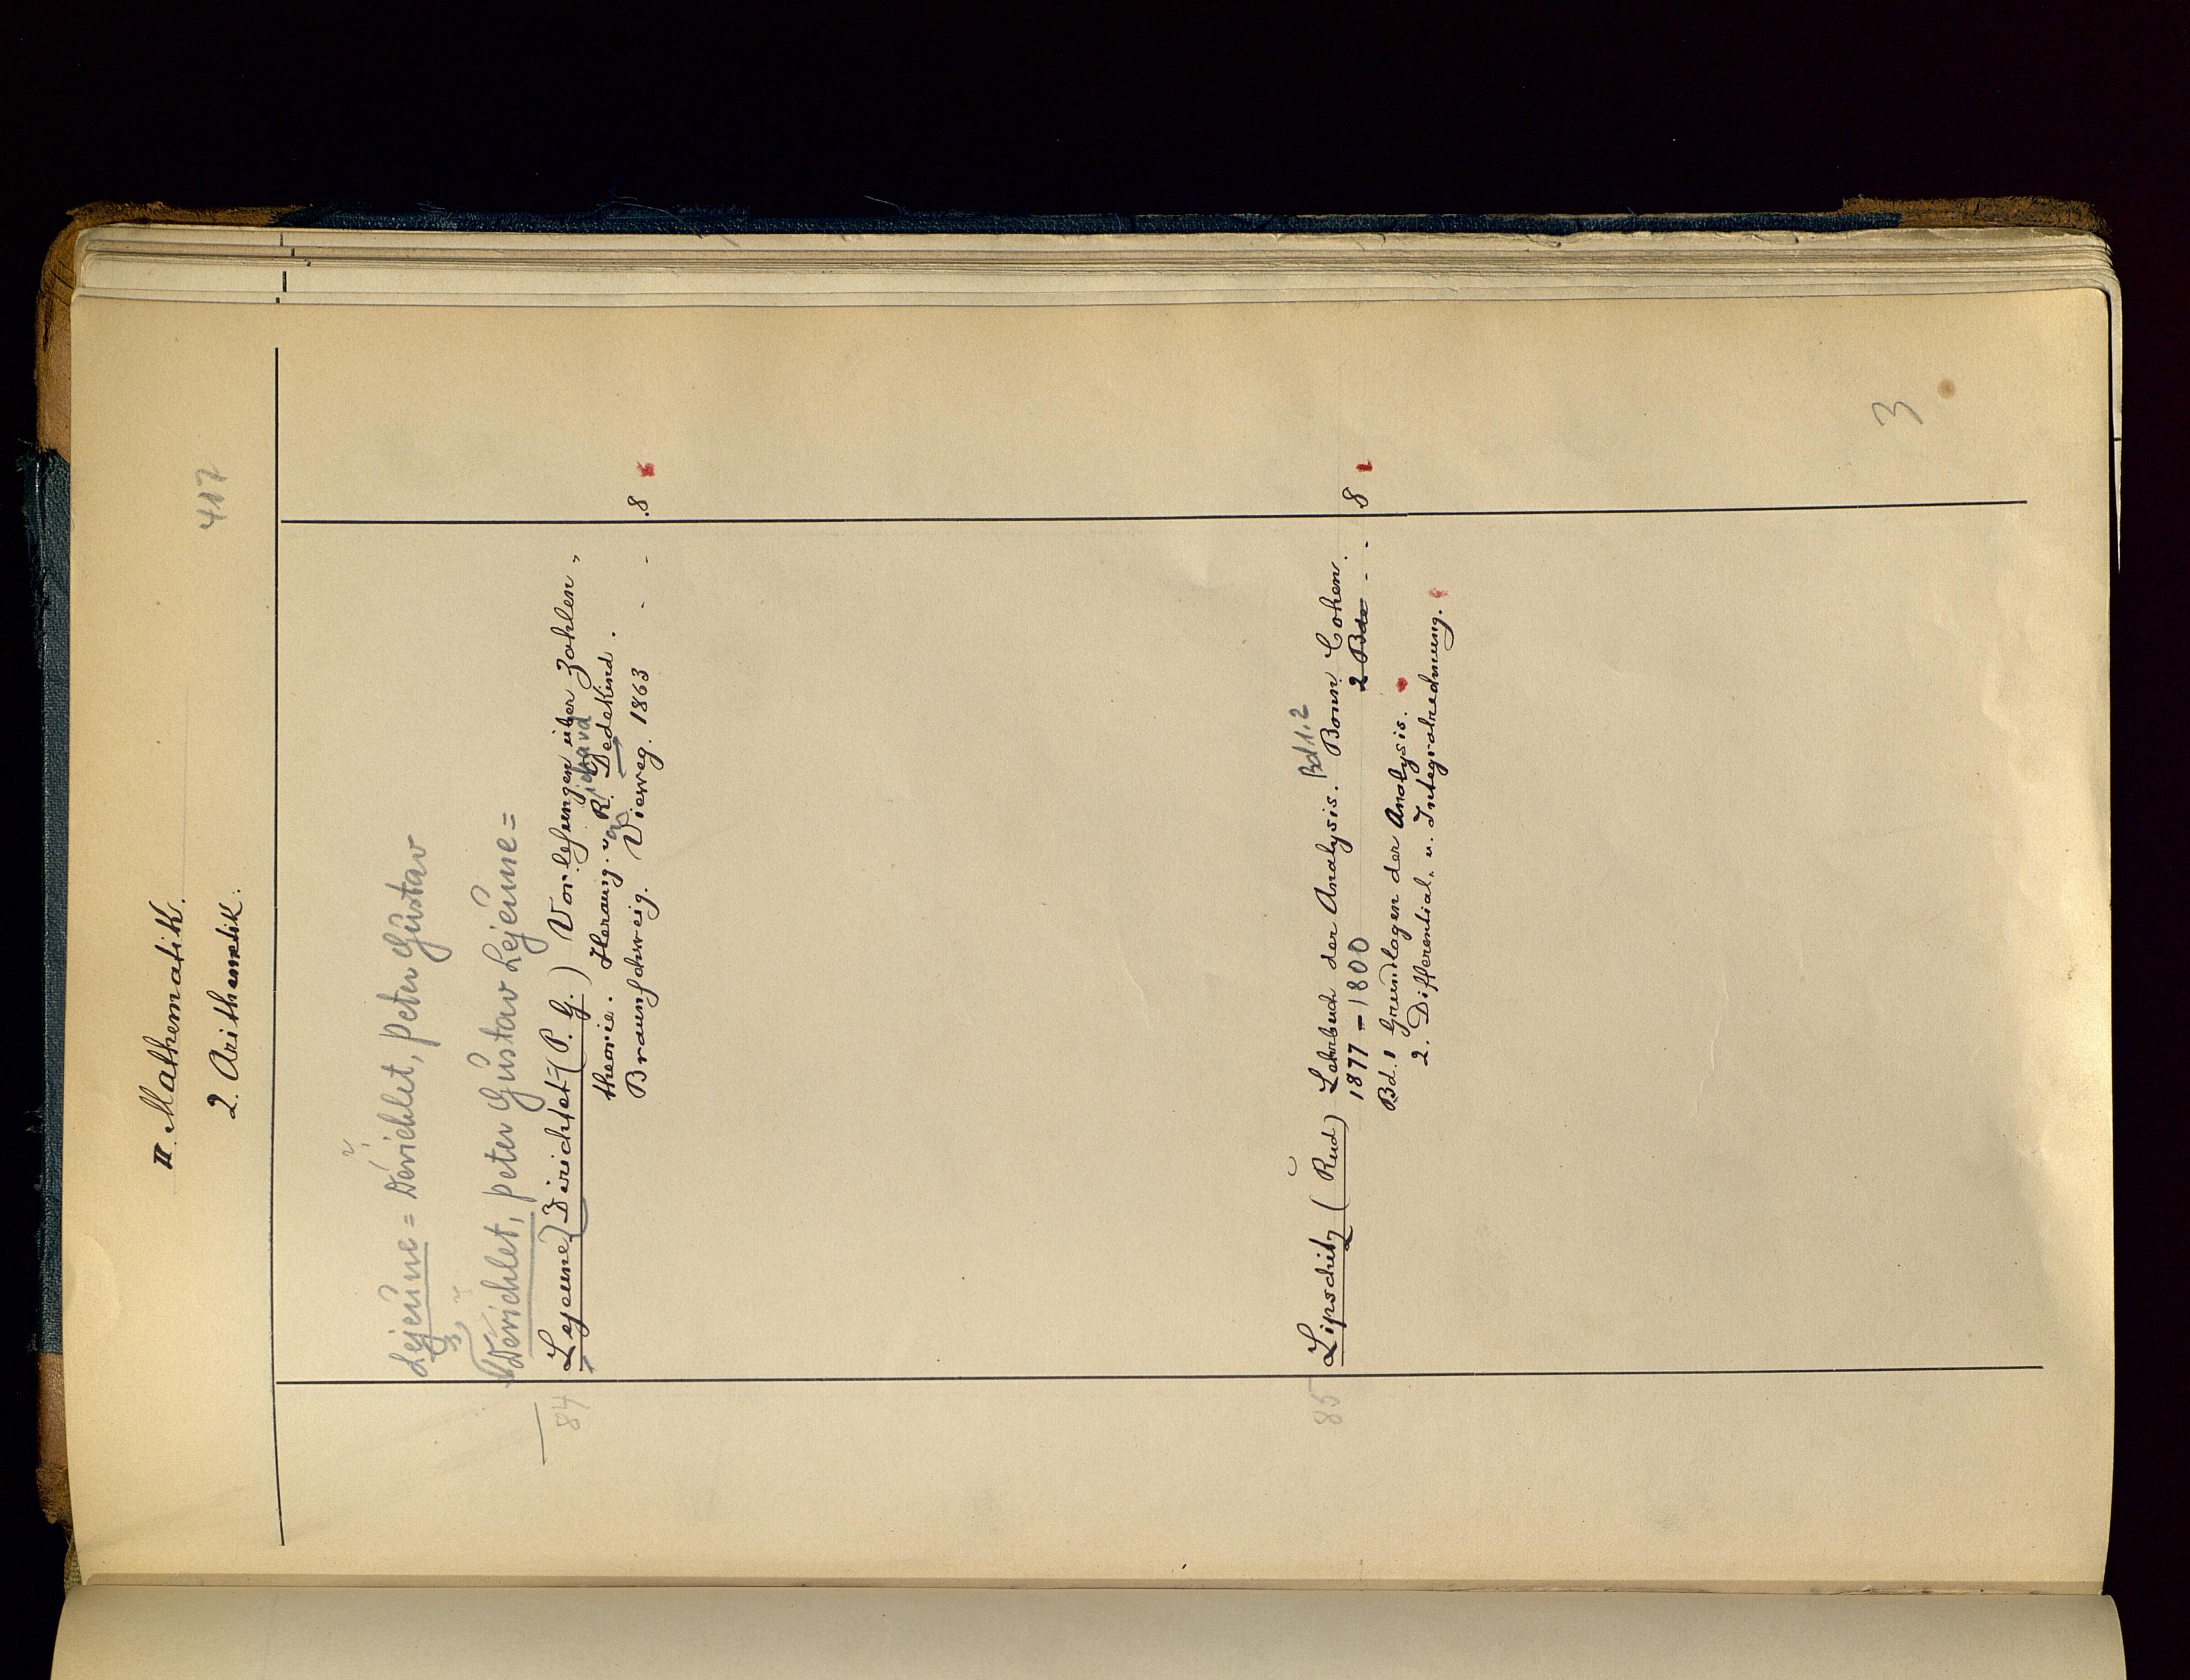 II. Mathematik.
2. Arithmetik.
417
Lejeune = Dirichlet, Peter Gustav
Dirichlet, Peter Gustav Lejeune =
84 Lejeune Dirichlet (P. G.) Vorlesungen über Zahlen„
theorie. Herausg. v. R. Dedekind.
Braunschweig. Vieweg. 1863 - - 8
85 Lipschitz (Rud) Lehrbuch der Analysis. Bd 1, 2 Bonn Cohen.
1877 - 1800 2 Bde - - 8
Bd. 1 Grundlagen der Analysis.
2. Differential„ u. Integralrechnung.
3